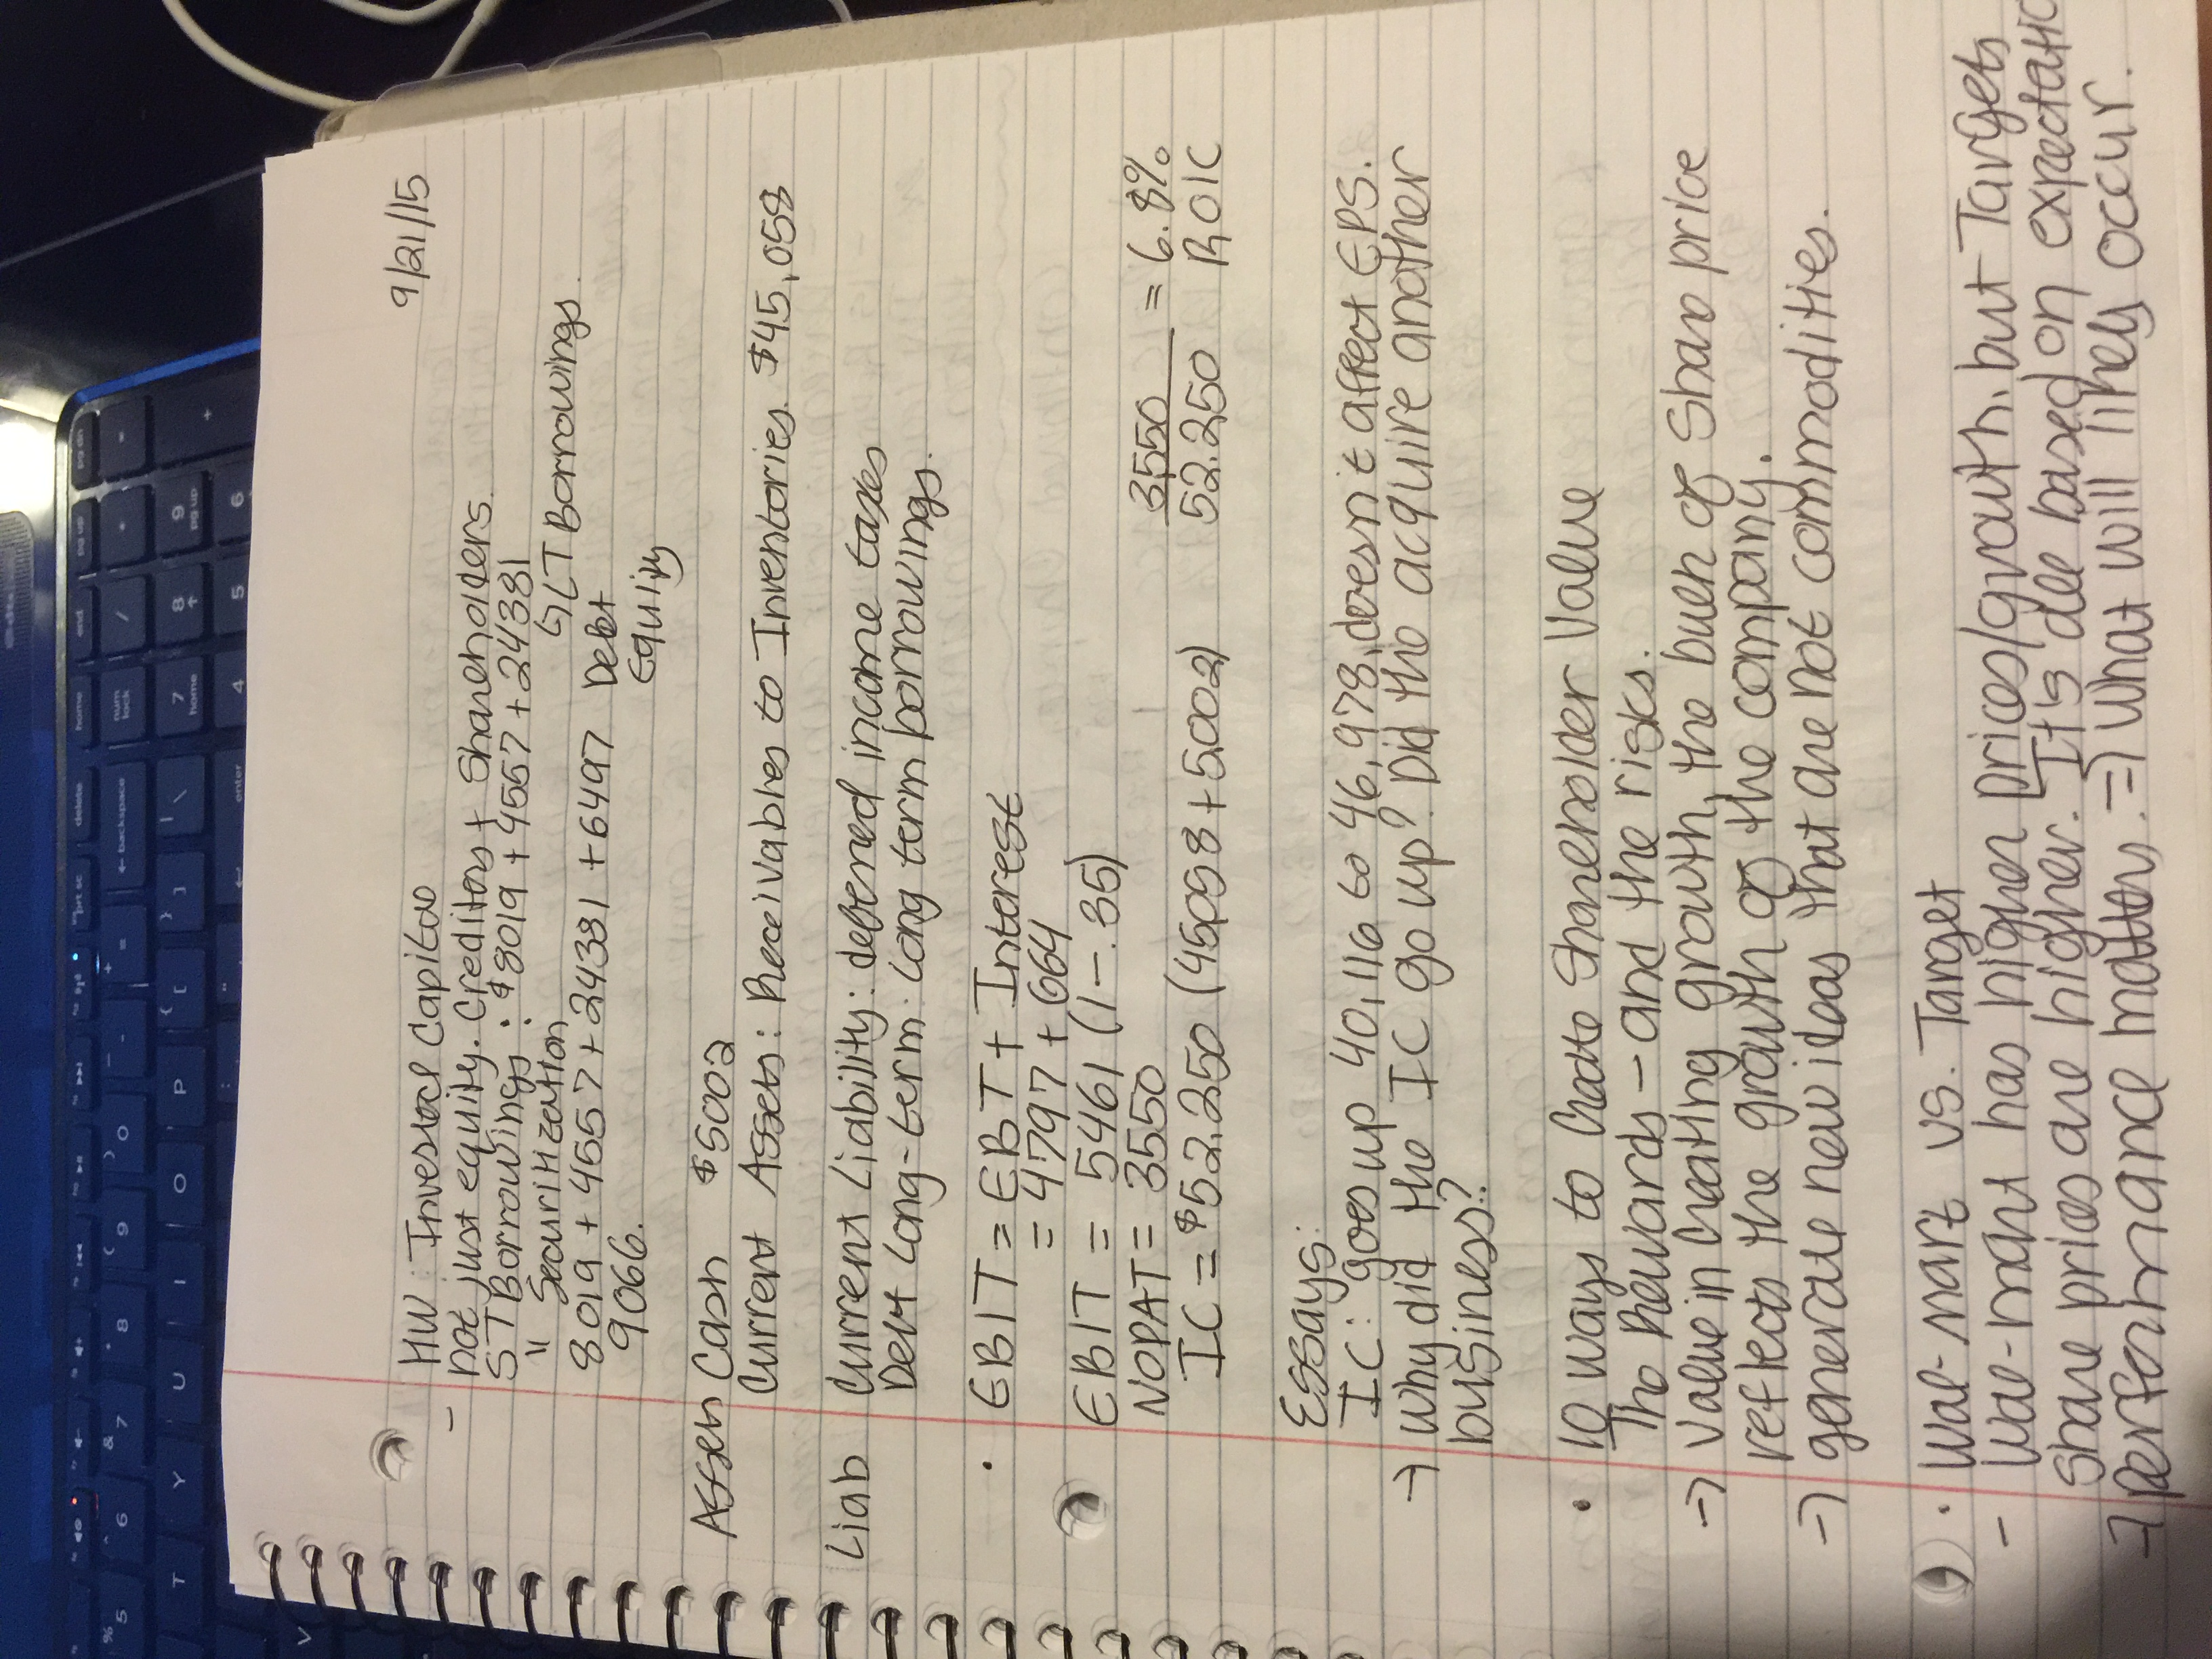 9/21/15
- HW: Invested Capital
not just equity. Creditors + Shareholders.
ST Borrowings: $8019 + 4557 + 24381
" Securitization ↳ LT Borrowings.
8019 + 4557 + 24381 + 6497 Debt
9066. Equity
Assets Cash $5002
Current Assets: Receivables to Inventories. $45,058
Liab Current Liability: deferred income taxes
Debt Long-term: Long term borrowings.
• EBIT = EBT + Interest
= 4797 + 664
EBIT = 5461 (1-.35)
NOPAT = 3550 3550 = 6.8%
IC = $52.250 (45058 + 5002) 52.250 ROIC
Essays:
IC: goes up 40,116 to 46,978, doesn't affect EPS.
→ Why did the IC go up? Did the acquire another
business?
• 10 ways to Create Shareholder Value
The Rewards - and the risks.
→ Value in creating growth, the buch of share price
reflects the growth of the company.
→ generate new ideas that are not commodities.
• Wal-Mart vs. Target
- Wal-mart has higher prices/growth, but Targets
Share prices are higher. It's all based on expectatio
→ performance matters. => What will likely occur.
% 5 ^ 6 & 7 * 8 ( 9 ) 0
T Y U I O P { [ } ] | \
V
prt sc delete home end pg up pg dn
backspace num lock / * -
7 home 8 9 pg up +
enter 4 5 6